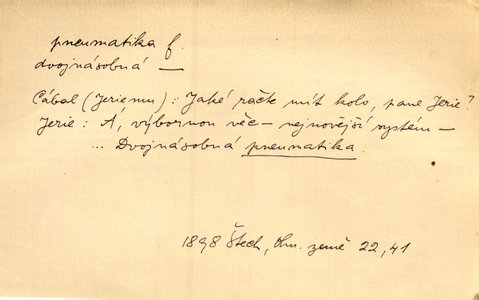 pneumatika f.
dvojnásobná —
Cábal (Jeriemu): Jaké račte mít kolo, pane Jerie?
Jerie: A, výbornou věc – nejnovější systém –
... Dvojnásobná pneumatika.
1898 Štech, země 22, 41